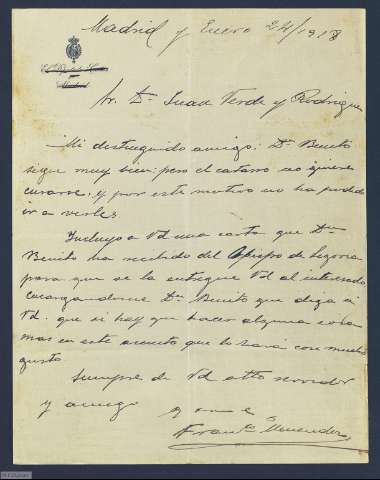 Madrid y Enero 24/1918
Sr. Dn. Juan Verde y Rodríguez
Mi distinguido amigo: Dn. Benito
sigue muy bien; pero el catarro no quiere
curarse, y por este motivo no ha podido
ir a verle.
Incluyo a Vd una carta que Dn.
Benito ha recibido del Obispo de Segovia
para que se la entregue Vd al interesado,
encargandome Dn. Benito que diga a
Vd. que si hay que hacer alguna cosa
mas en este asunto que lo hará con mucho
gusto.
Siempre de Vd atto servidor
y amigo
Franco Menendez